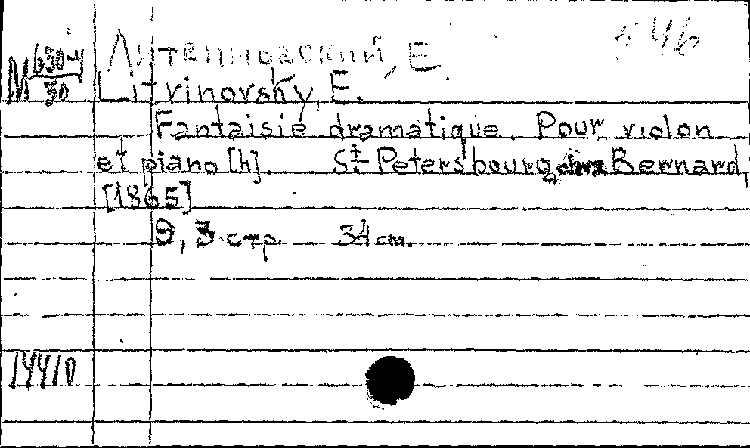 546
M 630-4/30
Литвиновский, Е.
Litvinovsky, E.
Fantaisie dramatique. Pour violon
et piano [h]. St. Petersbourg, chez Bernard,
[1865]
9, 3 стр. 34 cm.
14410